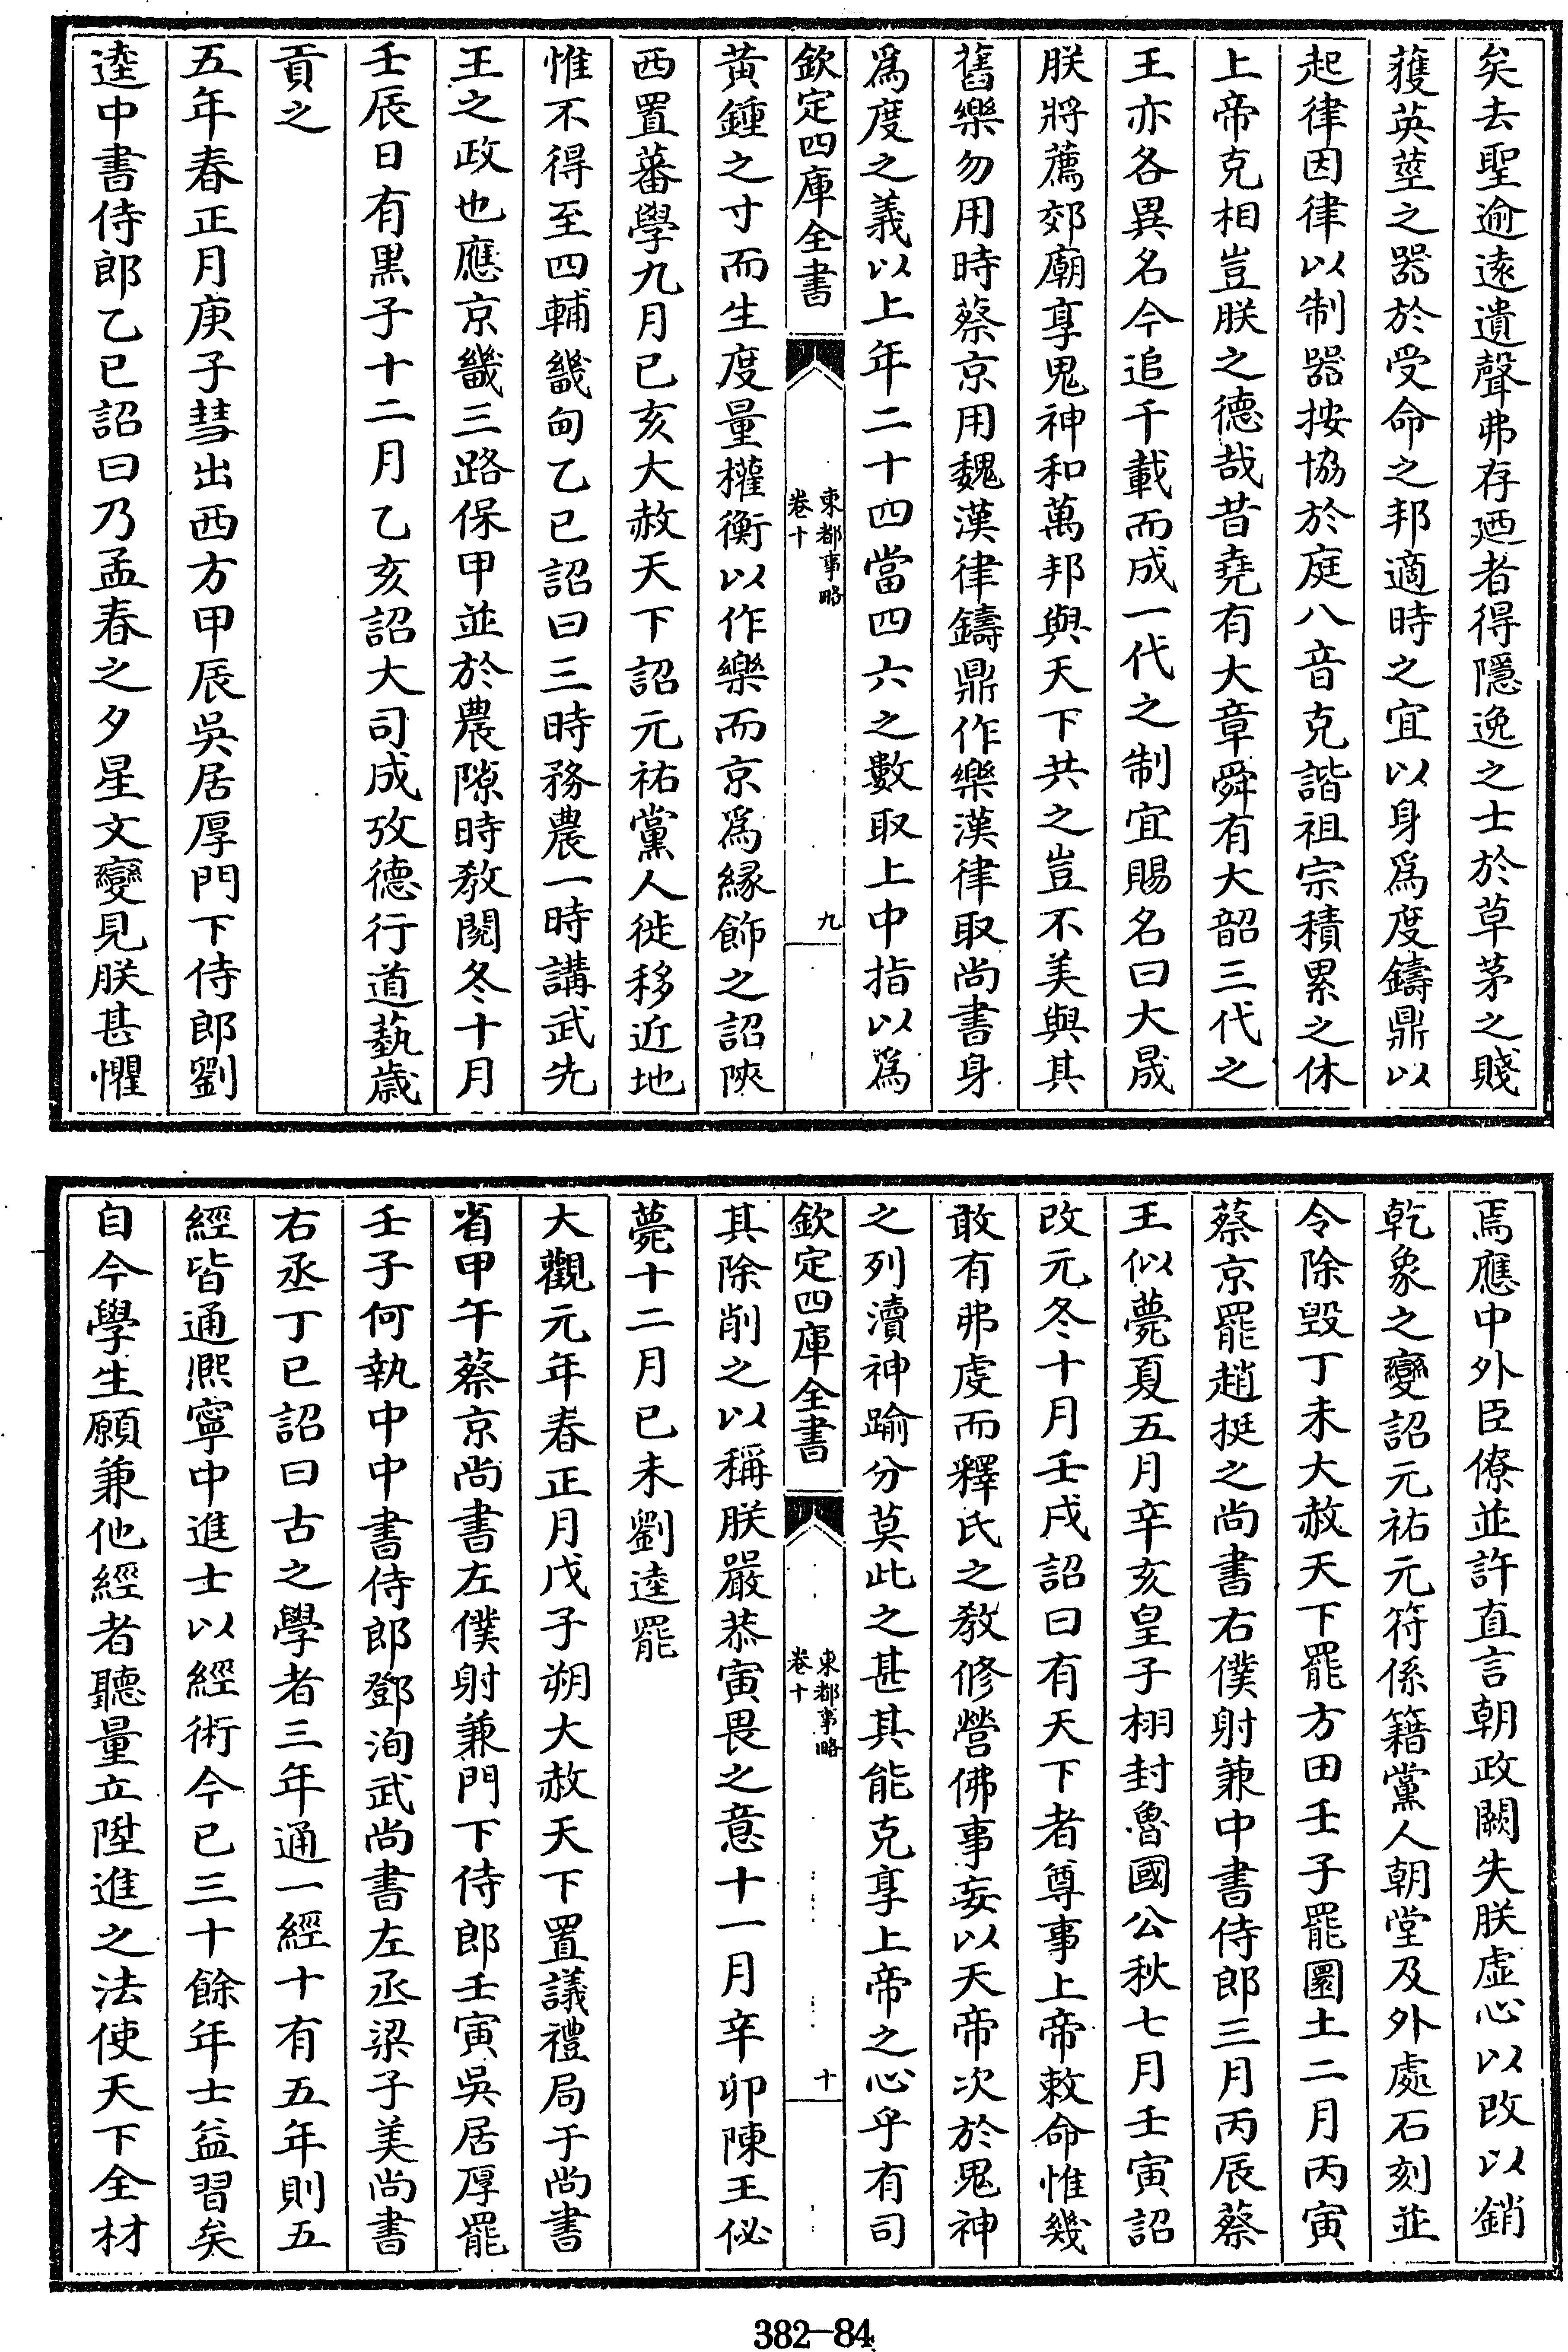 矣去聖逾遠遺聲弗存廼者得隱逸之士於草茅之賤
獲英莖之器於受命之邦適時之宜以身爲度鑄鼎以
起律因律以制器按協於庭八音克諧祖宗積累之休
上帝克相豈朕之德哉昔堯有大章舜有大韶三代之
王亦各異名今追千載而成一代之制宜賜名曰大晟
朕將薦郊廟享鬼神和萬邦與天下共之豈不美與其
舊樂勿用時蔡京用魏漢律鑄鼎作樂漢律取尚書身
爲度之義以上年二十四當四六之數取上中指以爲
欽定四庫全書
東都事略
卷十
九
黃鍾之寸而生度量權衡以作樂而京爲緣飾之詔陝
西置蕃學九月已亥大赦天下詔元祐黨人徙移近地
惟不得至四輔畿甸乙已詔曰三時務農一時講武先
王之政也應京畿三路保甲並於農隙時教閱冬十月
壬辰日有黑子十二月乙亥詔大司成攷德行道藝歲
貢之
五年春正月庚子彗出西方甲辰吳居厚門下侍郎劉
逵中書侍郎乙已詔曰乃孟春之夕星文變見朕甚懼
焉應中外臣僚並許直言朝政闕失朕虛心以改以銷
乾象之變詔元祐元符係籍黨人朝堂及外處石刻並
令除毀丁未大赦天下罷方田壬子罷圜土二月丙寅
蔡京罷趙挺之尚書右僕射兼中書侍郎三月丙辰蔡
王似薨夏五月辛亥皇子栩封魯國公秋七月壬寅詔
改元冬十月壬戌詔曰有天下者尊事上帝敕命惟幾
敢有弗虔而釋氏之教修營佛事妄以天帝次於鬼神
之列瀆神踰分莫此之甚其能克享上帝之心乎有司
欽定四庫全書
東都事略
卷十
十
其除削之以稱朕嚴恭寅畏之意十一月辛卯陳王佖
薨十二月已未劉逵罷
大觀元年春正月戊子朔大赦天下置議禮局于尚書
省甲午蔡京尚書左僕射兼門下侍郎壬寅吳居厚罷
壬子何執中中書侍郎鄧洵武尚書左丞梁子美尚書
右丞丁已詔曰古之學者三年通一經十有五年則五
經皆通熙寧中進士以經術今已三十餘年士益習矣
自今學生願兼他經者聽量立陞進之法使天下全材
382-84